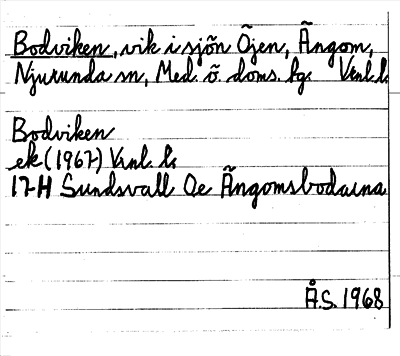 Bodviken, vik i sjön Öjen, Ängom,
Njurunda sn, Med. ö. doms. tg. Vnl. l.
Bodviken
ek (1967) Vnl. l.
17H Sundsvall Oe Ängomsbodarna
Å.S. 1968